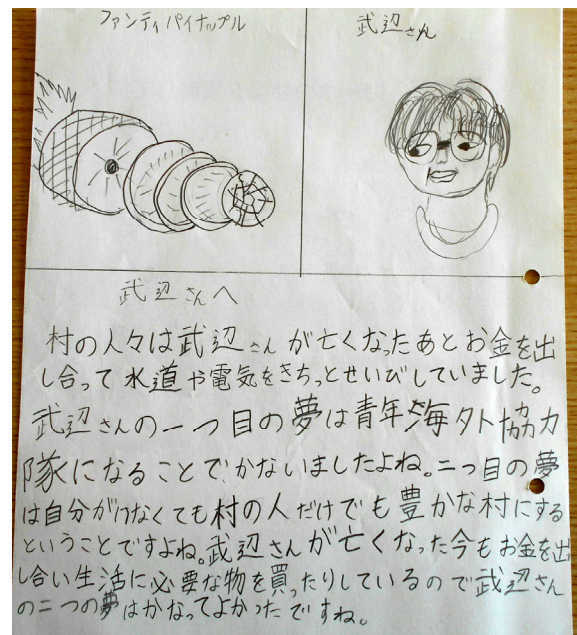 ファンティパイナップル
武辺さん
武辺さんへ
村の人々は武辺さんが亡くなったあとお金を出
し合って水道や電気をきちっとせいびしていました。
武辺さんの一つ目の夢は青年海外協力
隊になることでかないましたよね。二つ目の夢
は自分がいなくても村の人だけでも豊かな村にする
ということですよね。武辺さんが亡くなった今もお金を出
し合い生活に必要な物を買ったりしているので武辺さん
の二つの夢はかなってよかったですね。